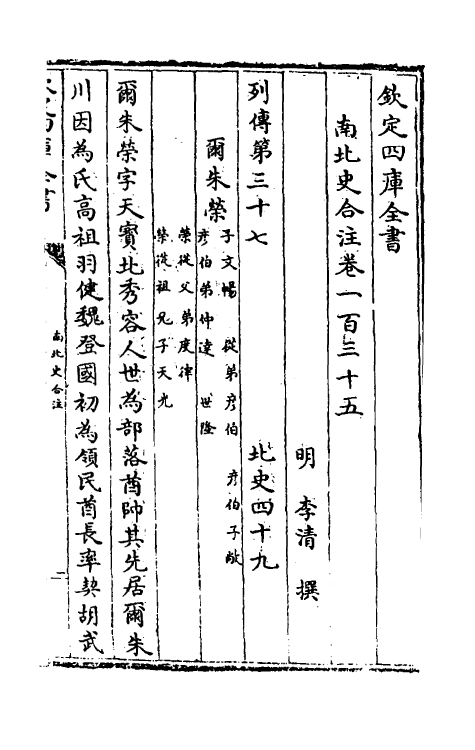 欽定四庫全書
南北史合注卷一百三十五
明 李清 撰
列傳第三十七
北史四十九
爾朱榮
子文暢 從弟彦伯 彦伯子敞
彦伯弟仲遠 世隆
榮從父弟度律
榮從祖兄子天光
爾朱榮字天寳北秀容人世為部落酋帥其先居爾朱
川因為氏高祖羽健魏登國初為領民酋長率契胡武
南北史合注